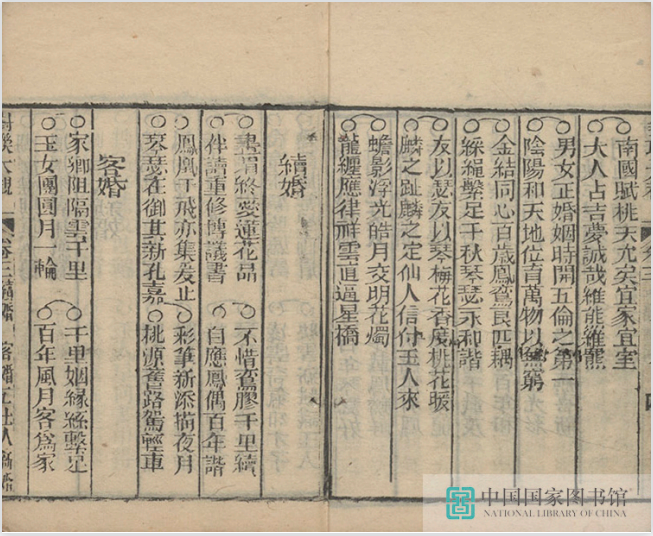 南國賦桃夭允矣宜家宜室
大人占吉夢誠哉維熊維羆
男女正婚姻時開五倫之第一
陰陽和天地位育萬物以無窮
金結同心百歲鳳鸞良匹耦
綵繩繫足千秋琴瑟永和諧
友以瑟友以琴梅花香度桃花暖
麟之趾麟之定仙人信付玉人來
蟾影浮光皓月交明花燭
龍纏應律祥雲直逼星橋
續婚
畫眉終愛蓮花品 不惜鸞膠千里續
伴讀重修博議書 自應鳳偶百年諧
鳳凰于飛亦集爰止 彩筆新添描夜月
琴瑟在御其新孔嘉 桃源舊路駕輕車
客婚
家鄉阻隔雲千里 千里姻緣絲繫足
玉女團圓月一輪 百年風月客爲家
大觀 卷三續婚 客婚
中国国家图书馆
NATIONAL LIBRARY OF CHINA